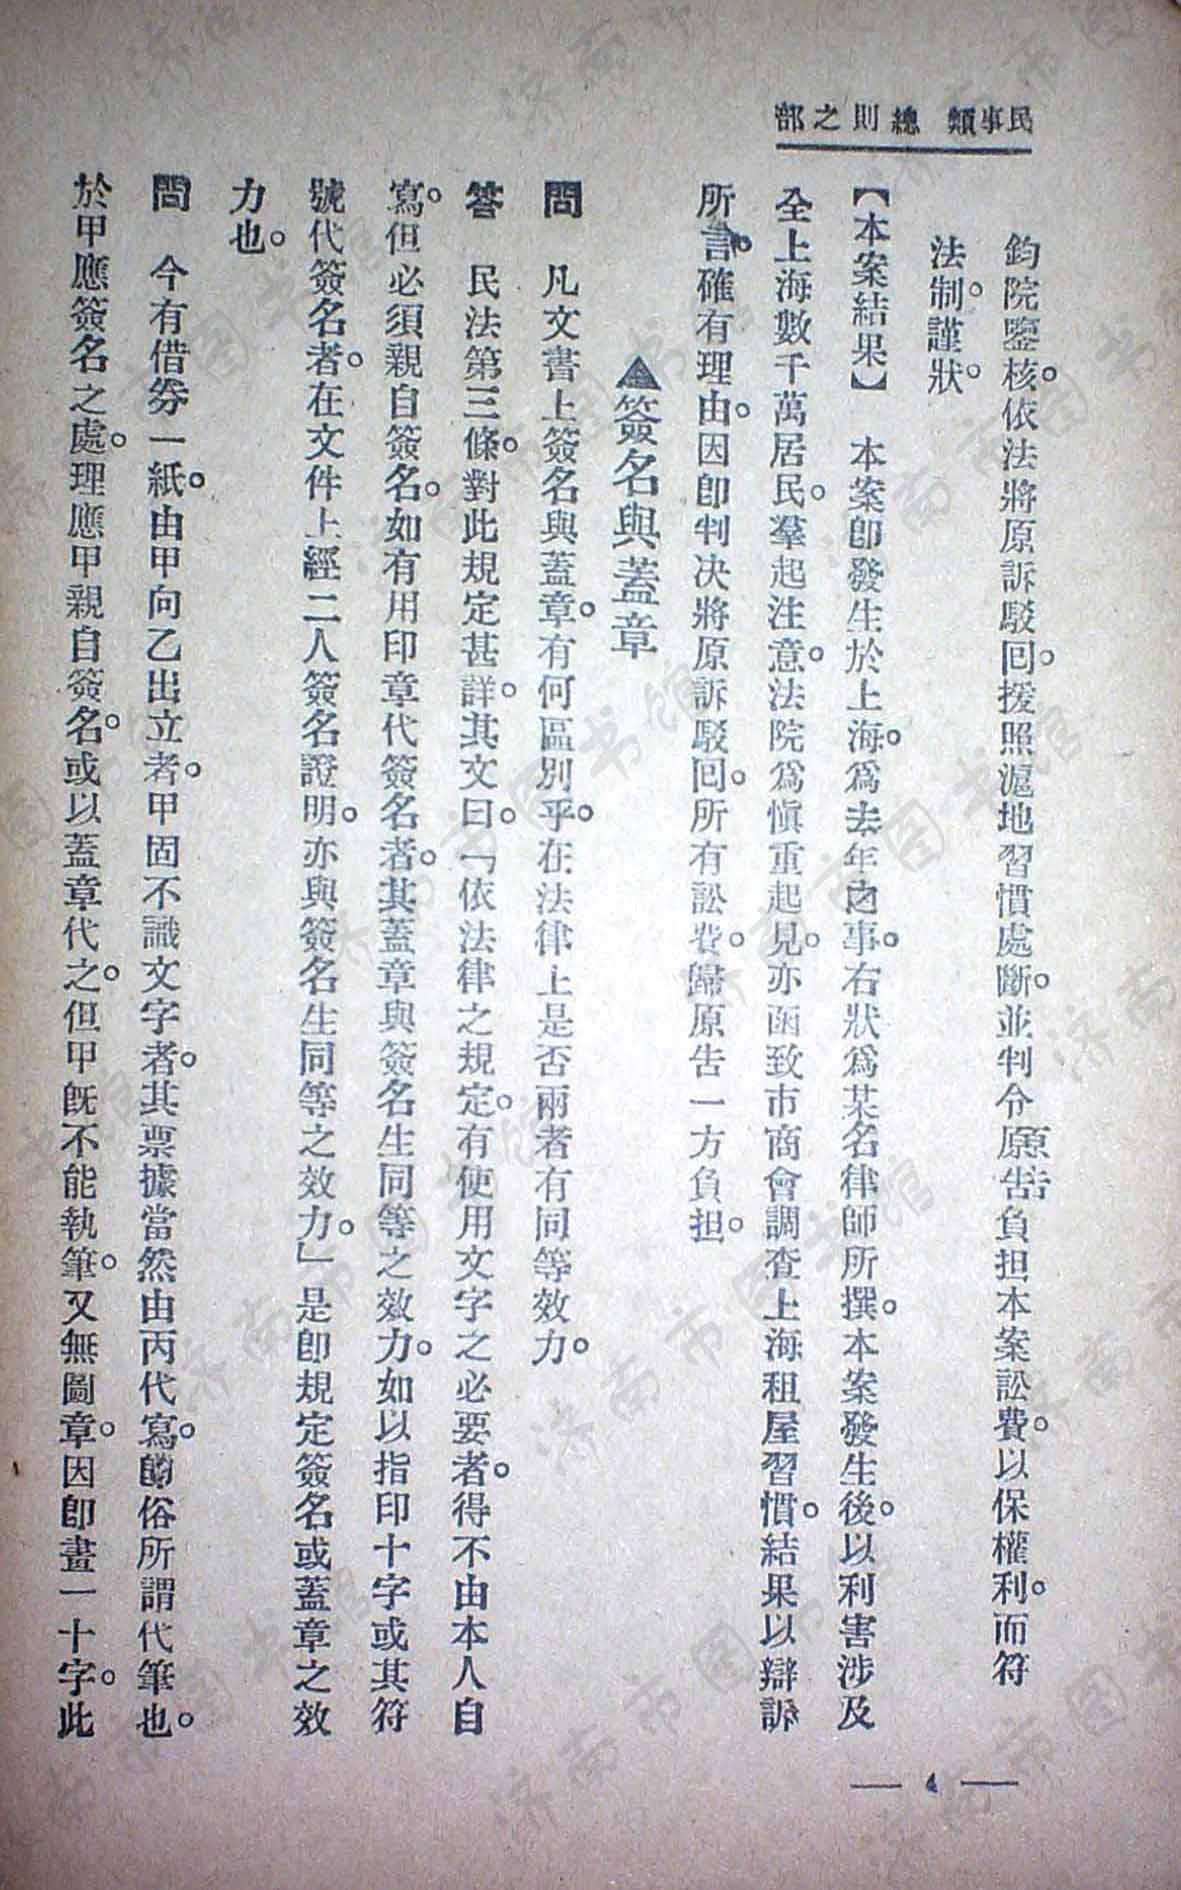 民事類 總則之部
鈞院鑒核。依法將原訴駁回。援照滬地習慣處斷。並判令原告負担本案訟費。以保權利。而符
法制。謹狀。
【本案結果】 本案卽發生於上海。爲去年之事。右狀爲某名律師所撰。本案發生後。以利害涉及
全上海數千萬居民。羣起注意。法院爲愼重起見。亦函致市商會調查上海租屋習慣。結果以辯訴
所言。確有理由。因卽判决將原訴駁回。所有訟費。歸原告一方負担。
▲簽名與蓋章
問 凡文書上簽名與蓋章。有何區別乎。在法律上是否兩者有同等效力。
答 民法第三條。對此規定甚詳。其文曰。「依法律之規定。有使用文字之必要者。得不由本人自
寫。但必須親自簽名。如有用印章代簽名者。其蓋章與簽名生同等之效力。如以指印十字或其符
號代簽名者。在文件上經二人簽名證明。亦與簽名生同等之效力。」是卽規定簽名或蓋章之效
力也。
問 今有借劵一紙。由甲向乙出立者。甲固不識文字者。其票據當然由丙代寫。卽俗所謂代筆也。
於甲應簽名之處。理應甲親自簽名。或以蓋章代之。但甲旣不能執筆。又無圖章。因卽畫一十字。此
— 4 —
济南市图书馆